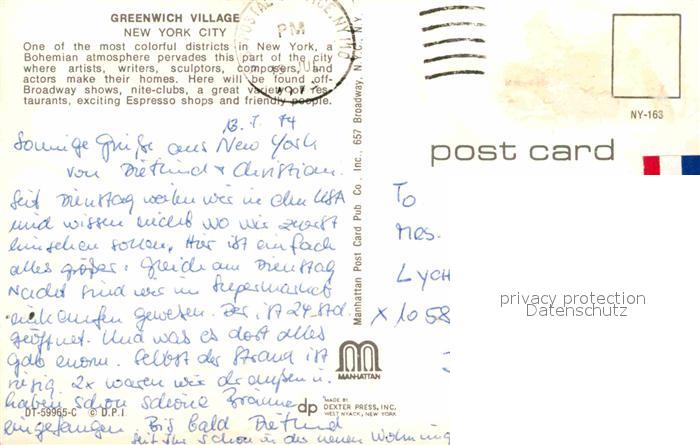 GREENWICH VILLAGE
NEW YORK CITY
One of the most colorful districts in New York, a
Bohemian atmosphere pervades this part of the city
where artists, writers, sculptors, composers, and
actors make their homes. Here will be found off-
Broadway shows, nite-clubs, a great variety of res-
taurants, exciting Espresso shops and friendly people.
PM
NY-163
post card
Manhattan Post Card Pub. Co., Inc., 657 Broadway, N.Y.C., N.Y.
Sonnige Grüße aus New York
von Dietlind & Christian.
Seit Dienstag weilen wir in den USA
und wissen nicht wo wir zuerst
hinsehen sollen. Hier ist einfach
alles größer. Gleich am Dienstag
Nacht sind wir im Supermarket
einkaufen gewesen. Der ist 24 Std.
geöffnet. Und was es dort alles
gab enorm. Selbst der Strand ist
riesig. 2x waren wir draußen u.
haben schon schöne Bräune
eingefangen. Bis bald Dietlind
Seid Ihr schon in der neuen Wohnung
To
Mrs.
Lych
X 1058
privacy protection
Datenschutz
MANHATTAN
DT-59965-C © D.P.I
dp
MADE BY
DEXTER PRESS, INC.
WEST NYACK, NEW YORK